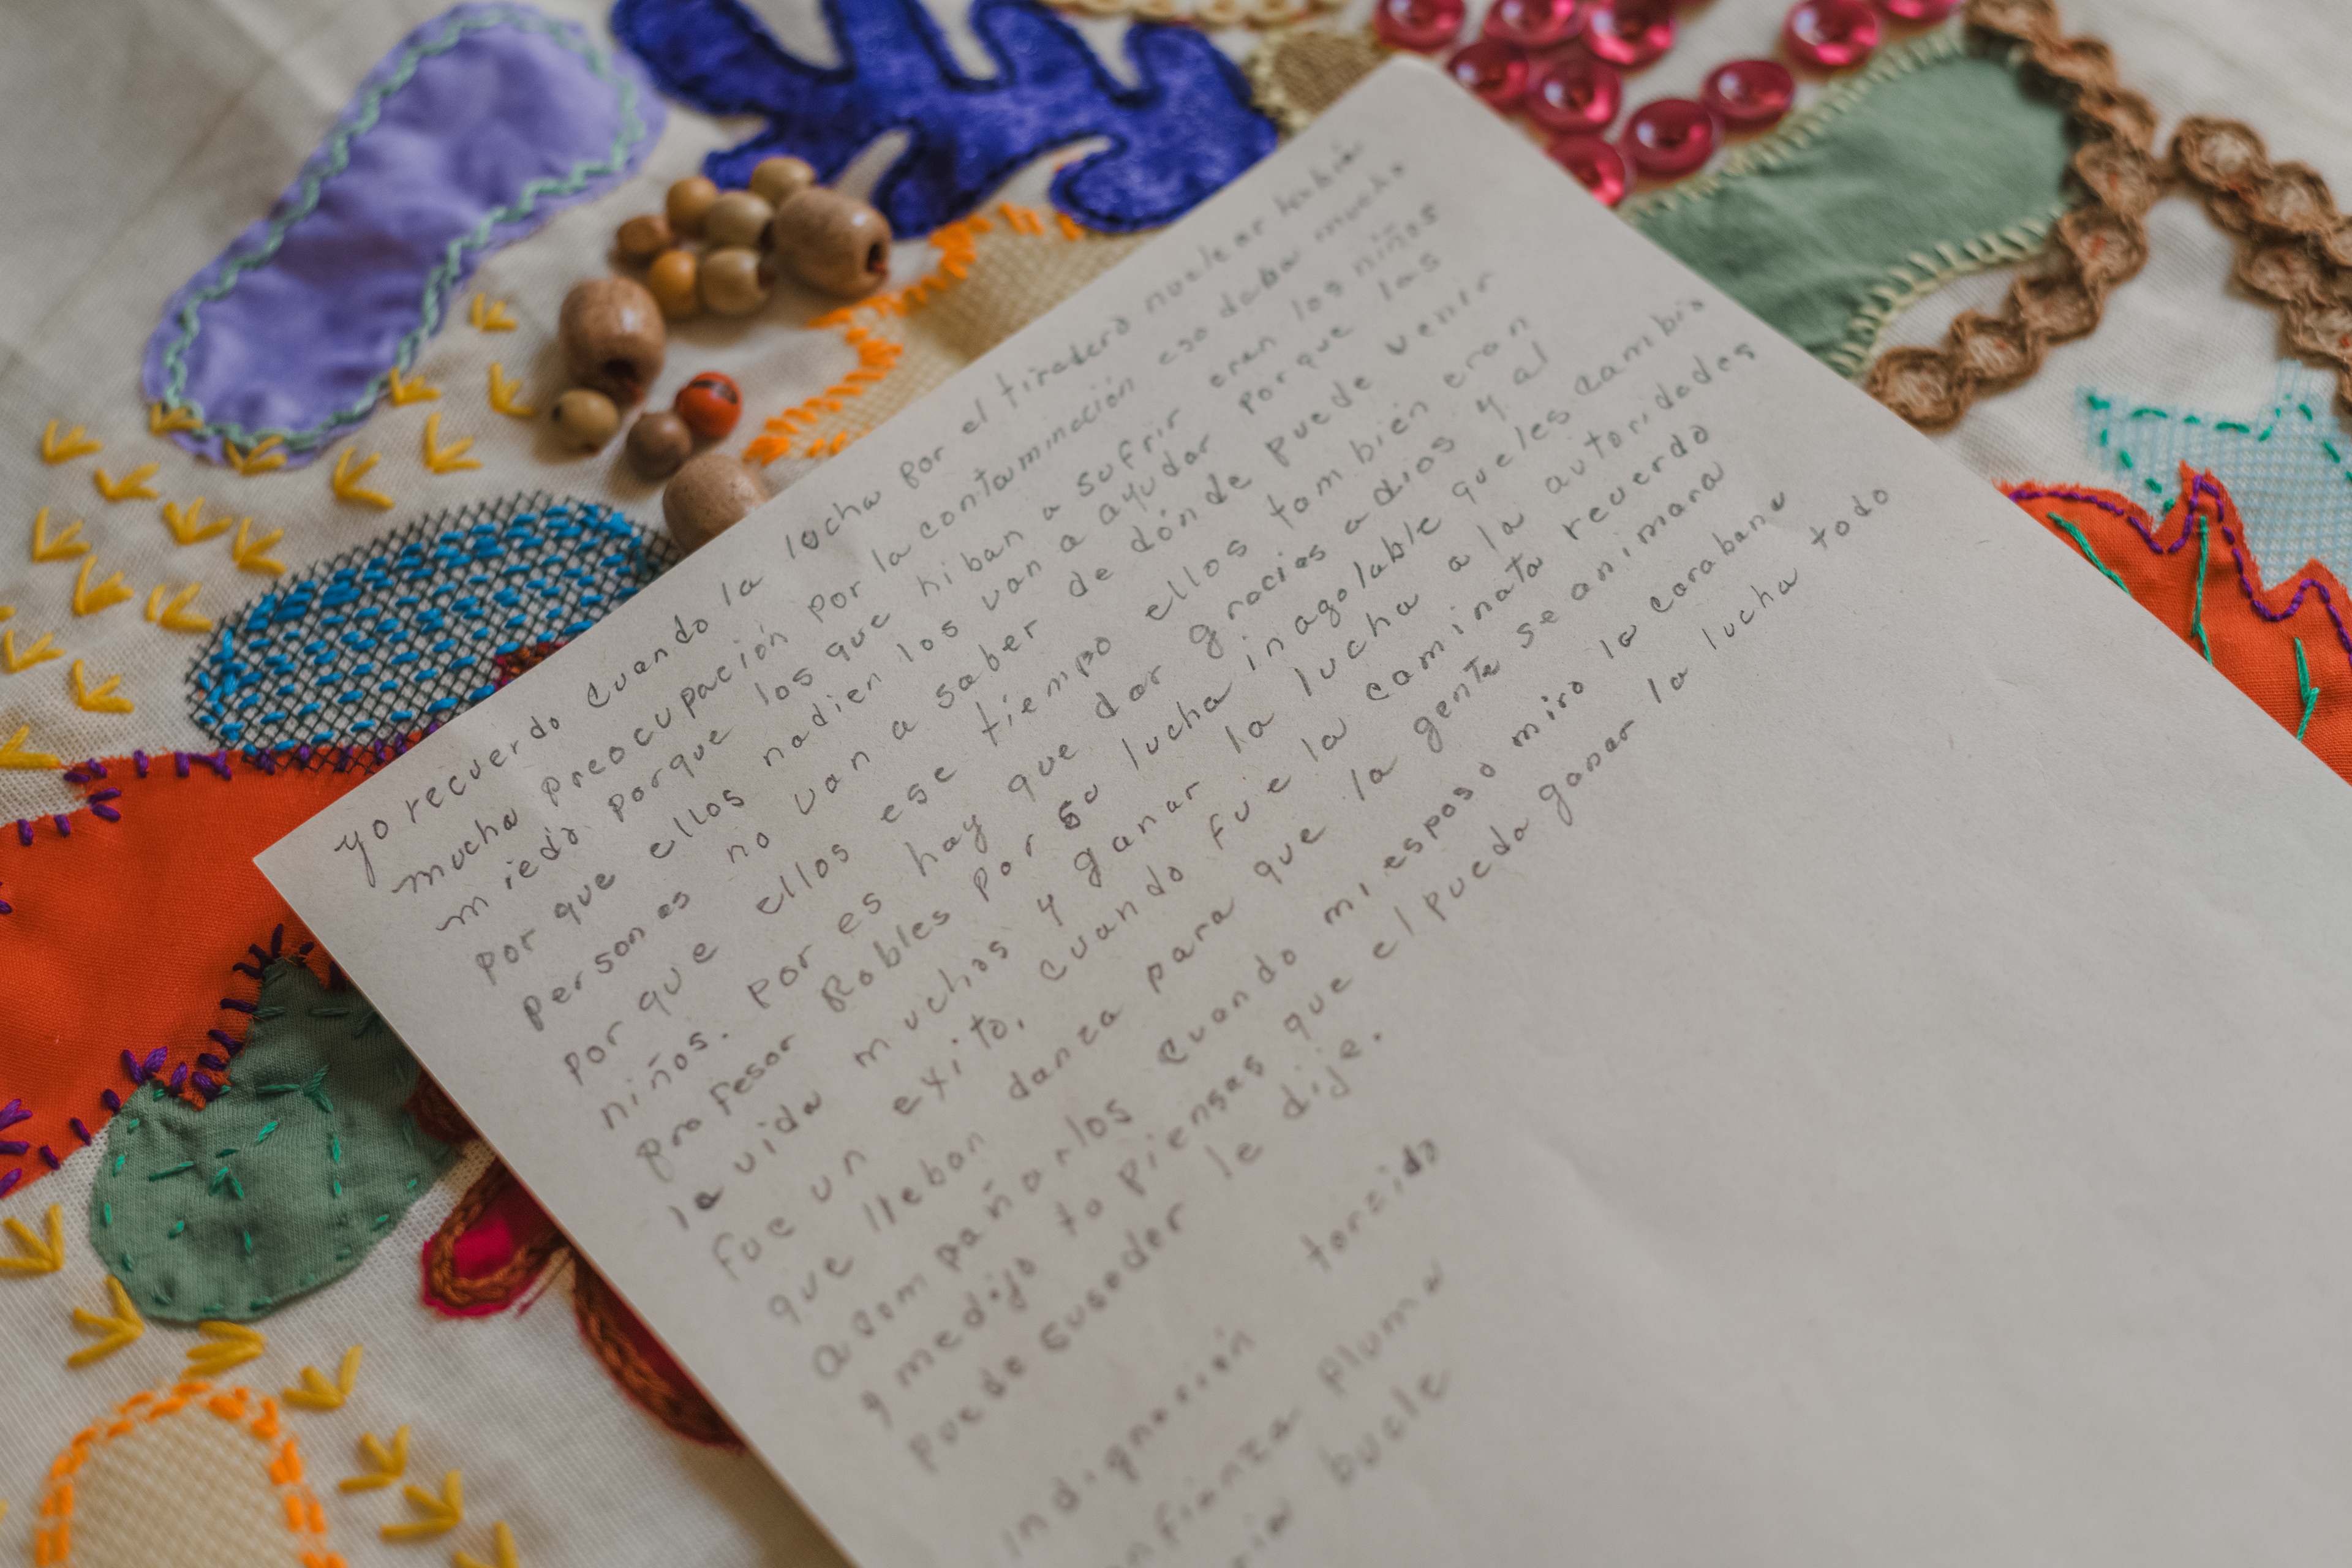 yo recuerdo cuando la lucha por el tiradero nuclear habia
mucha preocupación por la contaminación eso daba mucho
miedo porque los que hiban a sufrir eran los niños
por que ellos nadien los van a ayudar porque las
personas no van a saber de dónde puede venir
por que ellos ese tiempo ellos tambien eran
niños. por es hay que dar gracias a dios y al
profesor Robles por su lucha inagolable que les cambio
la vida muchos y ganar la lucha a la autoridades
fue un exito, cuando fue la caminata recuerdo
que lleban danza para que la gente se animara
acompañarlos cuando mi esposo miro la carabana
y medijo tu piensas que el pueda ganar la lucha todo
puede suseder le dije.
indignación torcido
nfianza pluma
ria bucle